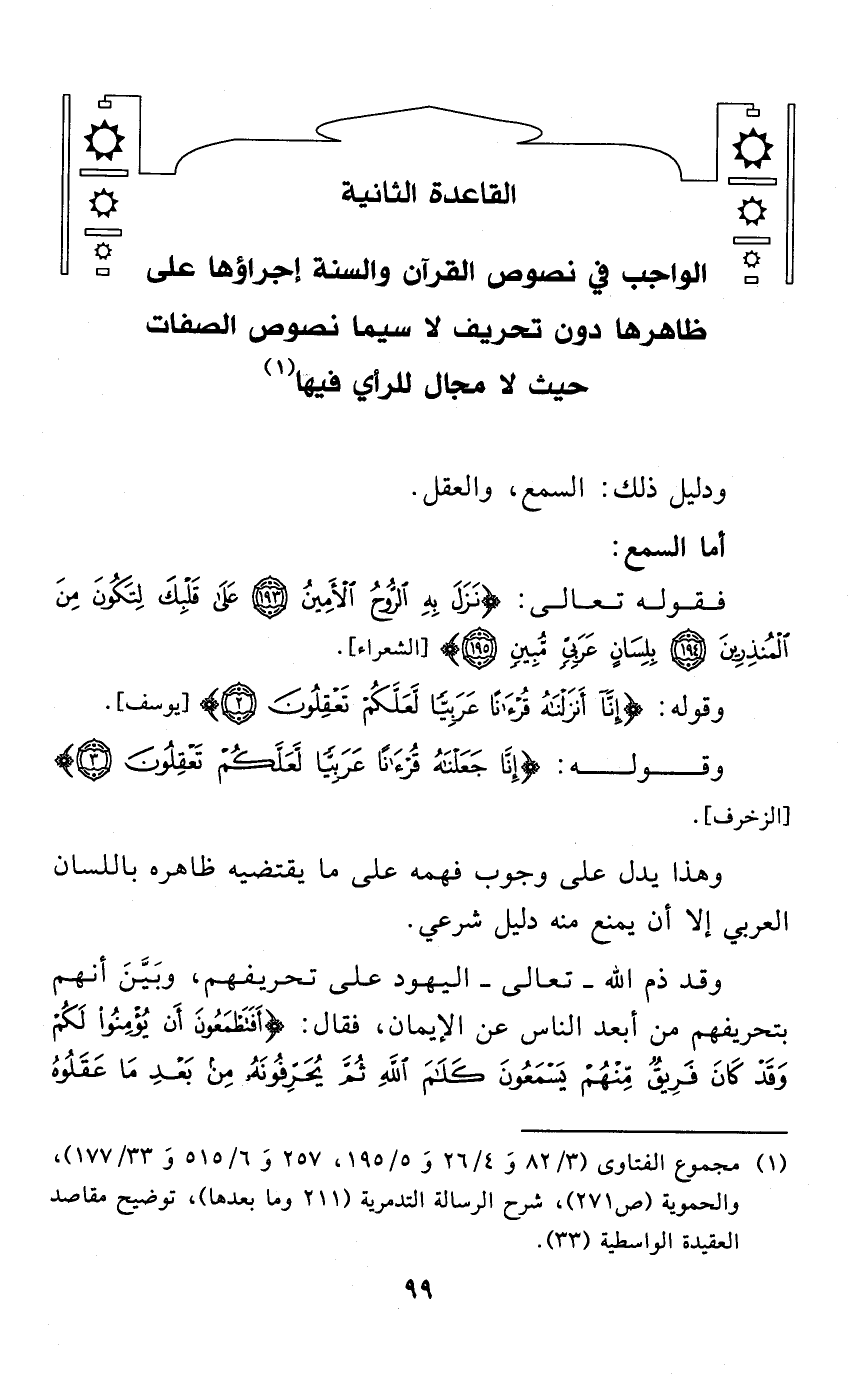 القاعدة الثانية
الواجب في نصوص القرآن والسنة إجراؤها على
ظاهرها دون تحريف لا سيما نصوص الصفات
حيث لا مجال للرأي فيها(١)
ودليل ذلك: السمع، والعقل.
أما السمع:
فـقـولـه تـعـالـى: ﴿نَزَلَ بِهِ ٱلرُّوحُ ٱلْأَمِينُ ١٩٣ عَلَىٰ قَلْبِكَ لِتَكُونَ مِنَ
ٱلْمُنذِرِينَ ١٩٤ بِلِسَانٍ عَرَبِيٍّ مُّبِينٍ ١٩٥﴾ [الشعراء].
وقوله: ﴿إِنَّآ أَنزَلْنَٰهُ قُرْءَٰنًا عَرَبِيًّا لَّعَلَّكُمْ تَعْقِلُونَ ٢﴾ [يوسف].
وقـــولـــه: ﴿إِنَّا جَعَلْنَٰهُ قُرْءَٰنًا عَرَبِيًّا لَّعَلَّكُمْ تَعْقِلُونَ ٣﴾
[الزخرف].
وهذا يدل على وجوب فهمه على ما يقتضيه ظاهره باللسان
العربي إلا أن يمنع منه دليل شرعي.
وقد ذم الله ـ تعالى ـ اليهود على تحريفهم، وبَيَّنَ أنهم
بتحريفهم من أبعد الناس عن الإيمان، فقال: ﴿أَفَتَطْمَعُونَ أَن يُؤْمِنُوا۟ لَكُمْ
وَقَدْ كَانَ فَرِيقٌ مِّنْهُمْ يَسْمَعُونَ كَلَٰمَ ٱللَّهِ ثُمَّ يُحَرِّفُونَهُۥ مِنۢ بَعْدِ مَا عَقَلُوهُ
(١) مجموع الفتاوى (٨٢/٣ وَ ٢٦/٤ وَ ١٩٥/٥، ٢٥٧ وَ ٥١٥/٦ وَ ١٧٧/٣٣)،
والحموية (ص٢٧١)، شرح الرسالة التدمرية (٢١١ وما بعدها)، توضيح مقاصد
العقيدة الواسطية (٣٣).
٩٩